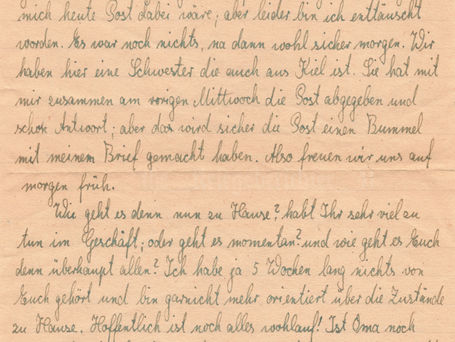 mich heute Post dabei wäre; aber leider bin ich enttäuscht
worden. Es war noch nichts, na dann wohl sicher morgen. Wir
haben hier eine Schwester die auch aus Kiel ist. Sie hat mit
mir zusammen am vorigen Mittwoch die Post abgegeben und
schon Antwort; aber das wird sicher die Post einen Bummel
mit meinem Brief gemacht haben. Also freuen wir uns auf
morgen früh.
Wie geht es denn nun zu Hause? habt Ihr sehr viel zu
tun im Geschäft; oder geht es momentan? und wie geht es Euch
denn überhaupt allen? Ich habe ja 5 Wochen lang nichts von
Euch gehört und bin garnicht mehr orientiert über die Zustände
zu Hause. Hoffentlich ist noch alles wohlauf! Ist Oma noch